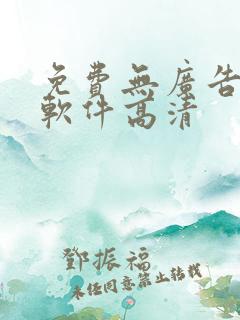 免費無廣告
軟件高清
鄧振福
未任同意禁止转载